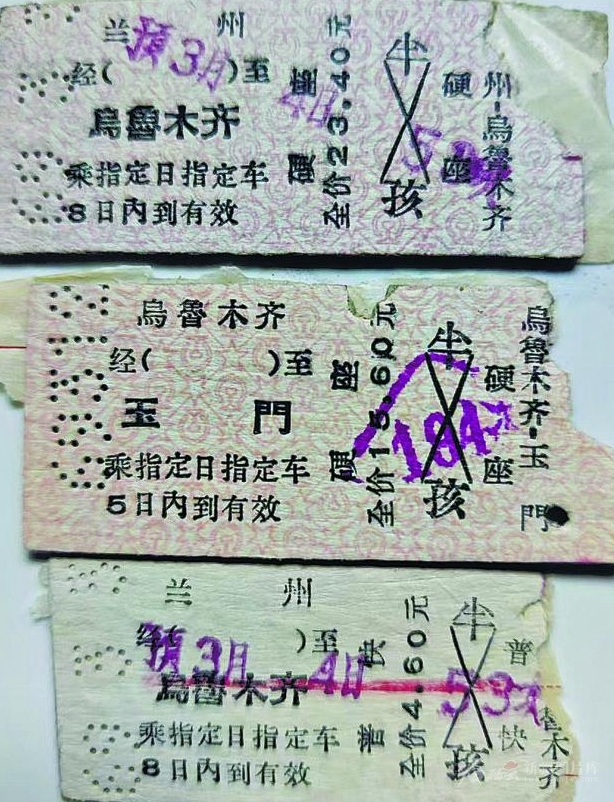 兰州
经( )至
预3月
4日
烏魯木齐
乘指定日指定车
8日内到有效
硬座
全价23.40元
半
孩
硬座
州-烏魯木齐
烏魯木齐
经( )至
玉門
乘指定日指定车
5日内到有效
硬座
全价15.60元
半
孩
184次
硬座
烏魯木齐-玉門
兰州
经( )至
预3月4日
烏魯木齐
乘指定日指定车
8日内到有效
普快
全价4.60元
半
孩
53次
普快
魯木齐